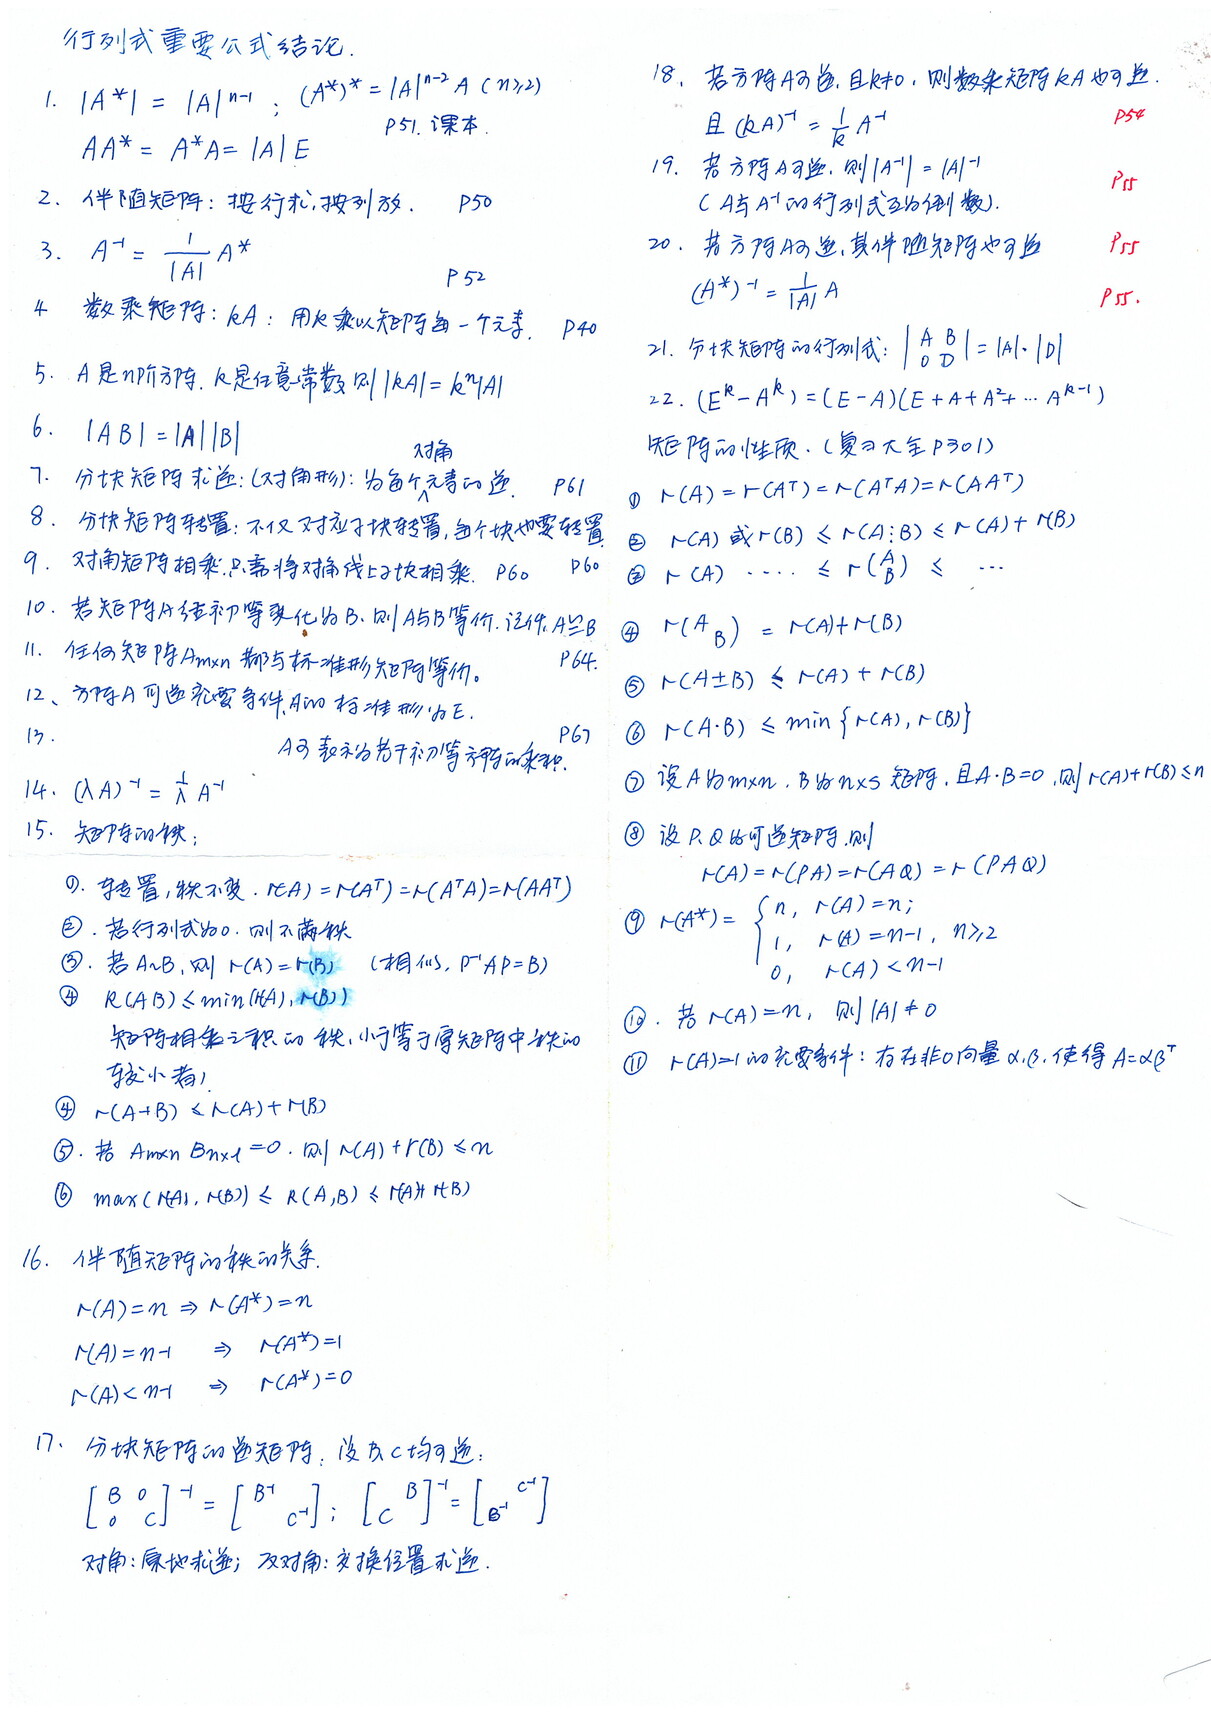 行列式重要公式结论.
1. |A*| = |A|ⁿ⁻¹ ; (A*)* = |A|ⁿ⁻² A (n≥2)
P51. 课本.
AA* = A*A = |A|E
2. 伴随矩阵: 按行求, 按列放. P50
3. A⁻¹ = 1/|A| A*
P52
4 数乘矩阵: kA: 用k乘以矩阵每一个元素. P40
5. A是n阶方阵. k是任意常数则|kA| = kⁿ|A|
6. |AB| = |A||B|
对角
7. 分块矩阵求逆: (对角形): 为每个∧元素的逆. P61
8. 分块矩阵转置: 不仅对应子块转置, 每个块也要转置
P60
9. 对角矩阵相乘. 只需将对角线上子块相乘. P60
10. 若矩阵A经初等变化为B. 则A与B等价. 记作. A≅B
11. 任何矩阵Am×n 都与标准形矩阵等价。 P64.
12、方阵A可逆充要条件, A的标准形为E.
13. A可表示为若干初等方阵的乘积. P67
14. (λA)⁻¹ = 1/λ A⁻¹
15. 矩阵的秩:
①. 转置, 秩不变. r(A) = r(Aᵀ) = r(AᵀA) = r(AAᵀ)
②. 若行列式为0. 则不满秩
③. 若A~B, 则 r(A) = r(B) (相似, P⁻¹AP = B)
④ R(AB) ≤ min(r(A), r(B))
矩阵相乘之积的秩, 小于等于原矩阵中秩的
较小者!
④ r(A+B) ≤ r(A) + r(B)
⑤. 若 Am×n Bn×l = 0. 则 r(A) + r(B) ≤ n
⑥ max(r(A), r(B)) ≤ R(A,B) ≤ r(A)+r(B)
16. 伴随矩阵的秩的关系.
r(A) = n ⇒ r(A*) = n
r(A) = n-1 ⇒ r(A*) = 1
r(A) < n-1 ⇒ r(A*) = 0
17. 分块矩阵的逆矩阵. 设B, C均可逆:
[B 0; 0 C]⁻¹ = [B⁻¹ ; C⁻¹]; [ B; C ]⁻¹ = [ C⁻¹; B⁻¹ ]
对角: 原地求逆; 反对角: 交换位置求逆.
18. 若方阵A可逆, 且k≠0, 则数乘矩阵kA也可逆.
且 (kA)⁻¹ = 1/k A⁻¹ P54
19. 若方阵A可逆. 则|A⁻¹| = |A|⁻¹
P55
(A与A⁻¹的行列式互为倒数).
20. 若方阵A可逆, 其伴随矩阵也可逆 P55
(A*)⁻¹ = 1/|A| A P55.
21. 分块矩阵的行列式: |A B; 0 D| = |A|·|D|
22. (Eᵏ - Aᵏ) = (E-A)(E+A+A²+ ⋯ Aᵏ⁻¹)
矩阵的性质. (复习大全P301)
① r(A) = r(Aᵀ) = r(AᵀA) = r(AAᵀ)
② r(A) 或 r(B) ≤ r(A⋮B) ≤ r(A) + r(B)
③ r(A) ····· ≤ r(A; B) ≤ ···
④ r(A ; B) = r(A)+r(B)
⑤ r(A±B) ≤ r(A) + r(B)
⑥ r(A·B) ≤ min{r(A), r(B)}
⑦ 设A为m×n. B为n×s矩阵, 且A·B=0, 则r(A)+r(B)≤n
⑧ 设P, Q为可逆矩阵, 则
r(A) = r(PA) = r(AQ) = r(PAQ)
⑨ r(A*) = { n, r(A)=n;
1, r(A)=n-1, n≥2
0, r(A)<n-1
⑩. 若r(A)=n, 则|A|≠0
⑪ r(A)=1的充要条件: 存在非0向量α, β. 使得A=αβᵀ